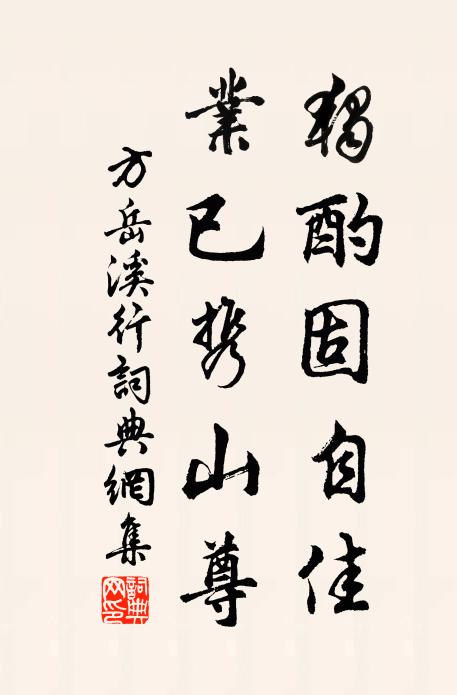 獨酌固自佳
業已携山尊
方岳溪行詞典網集
詞典網印